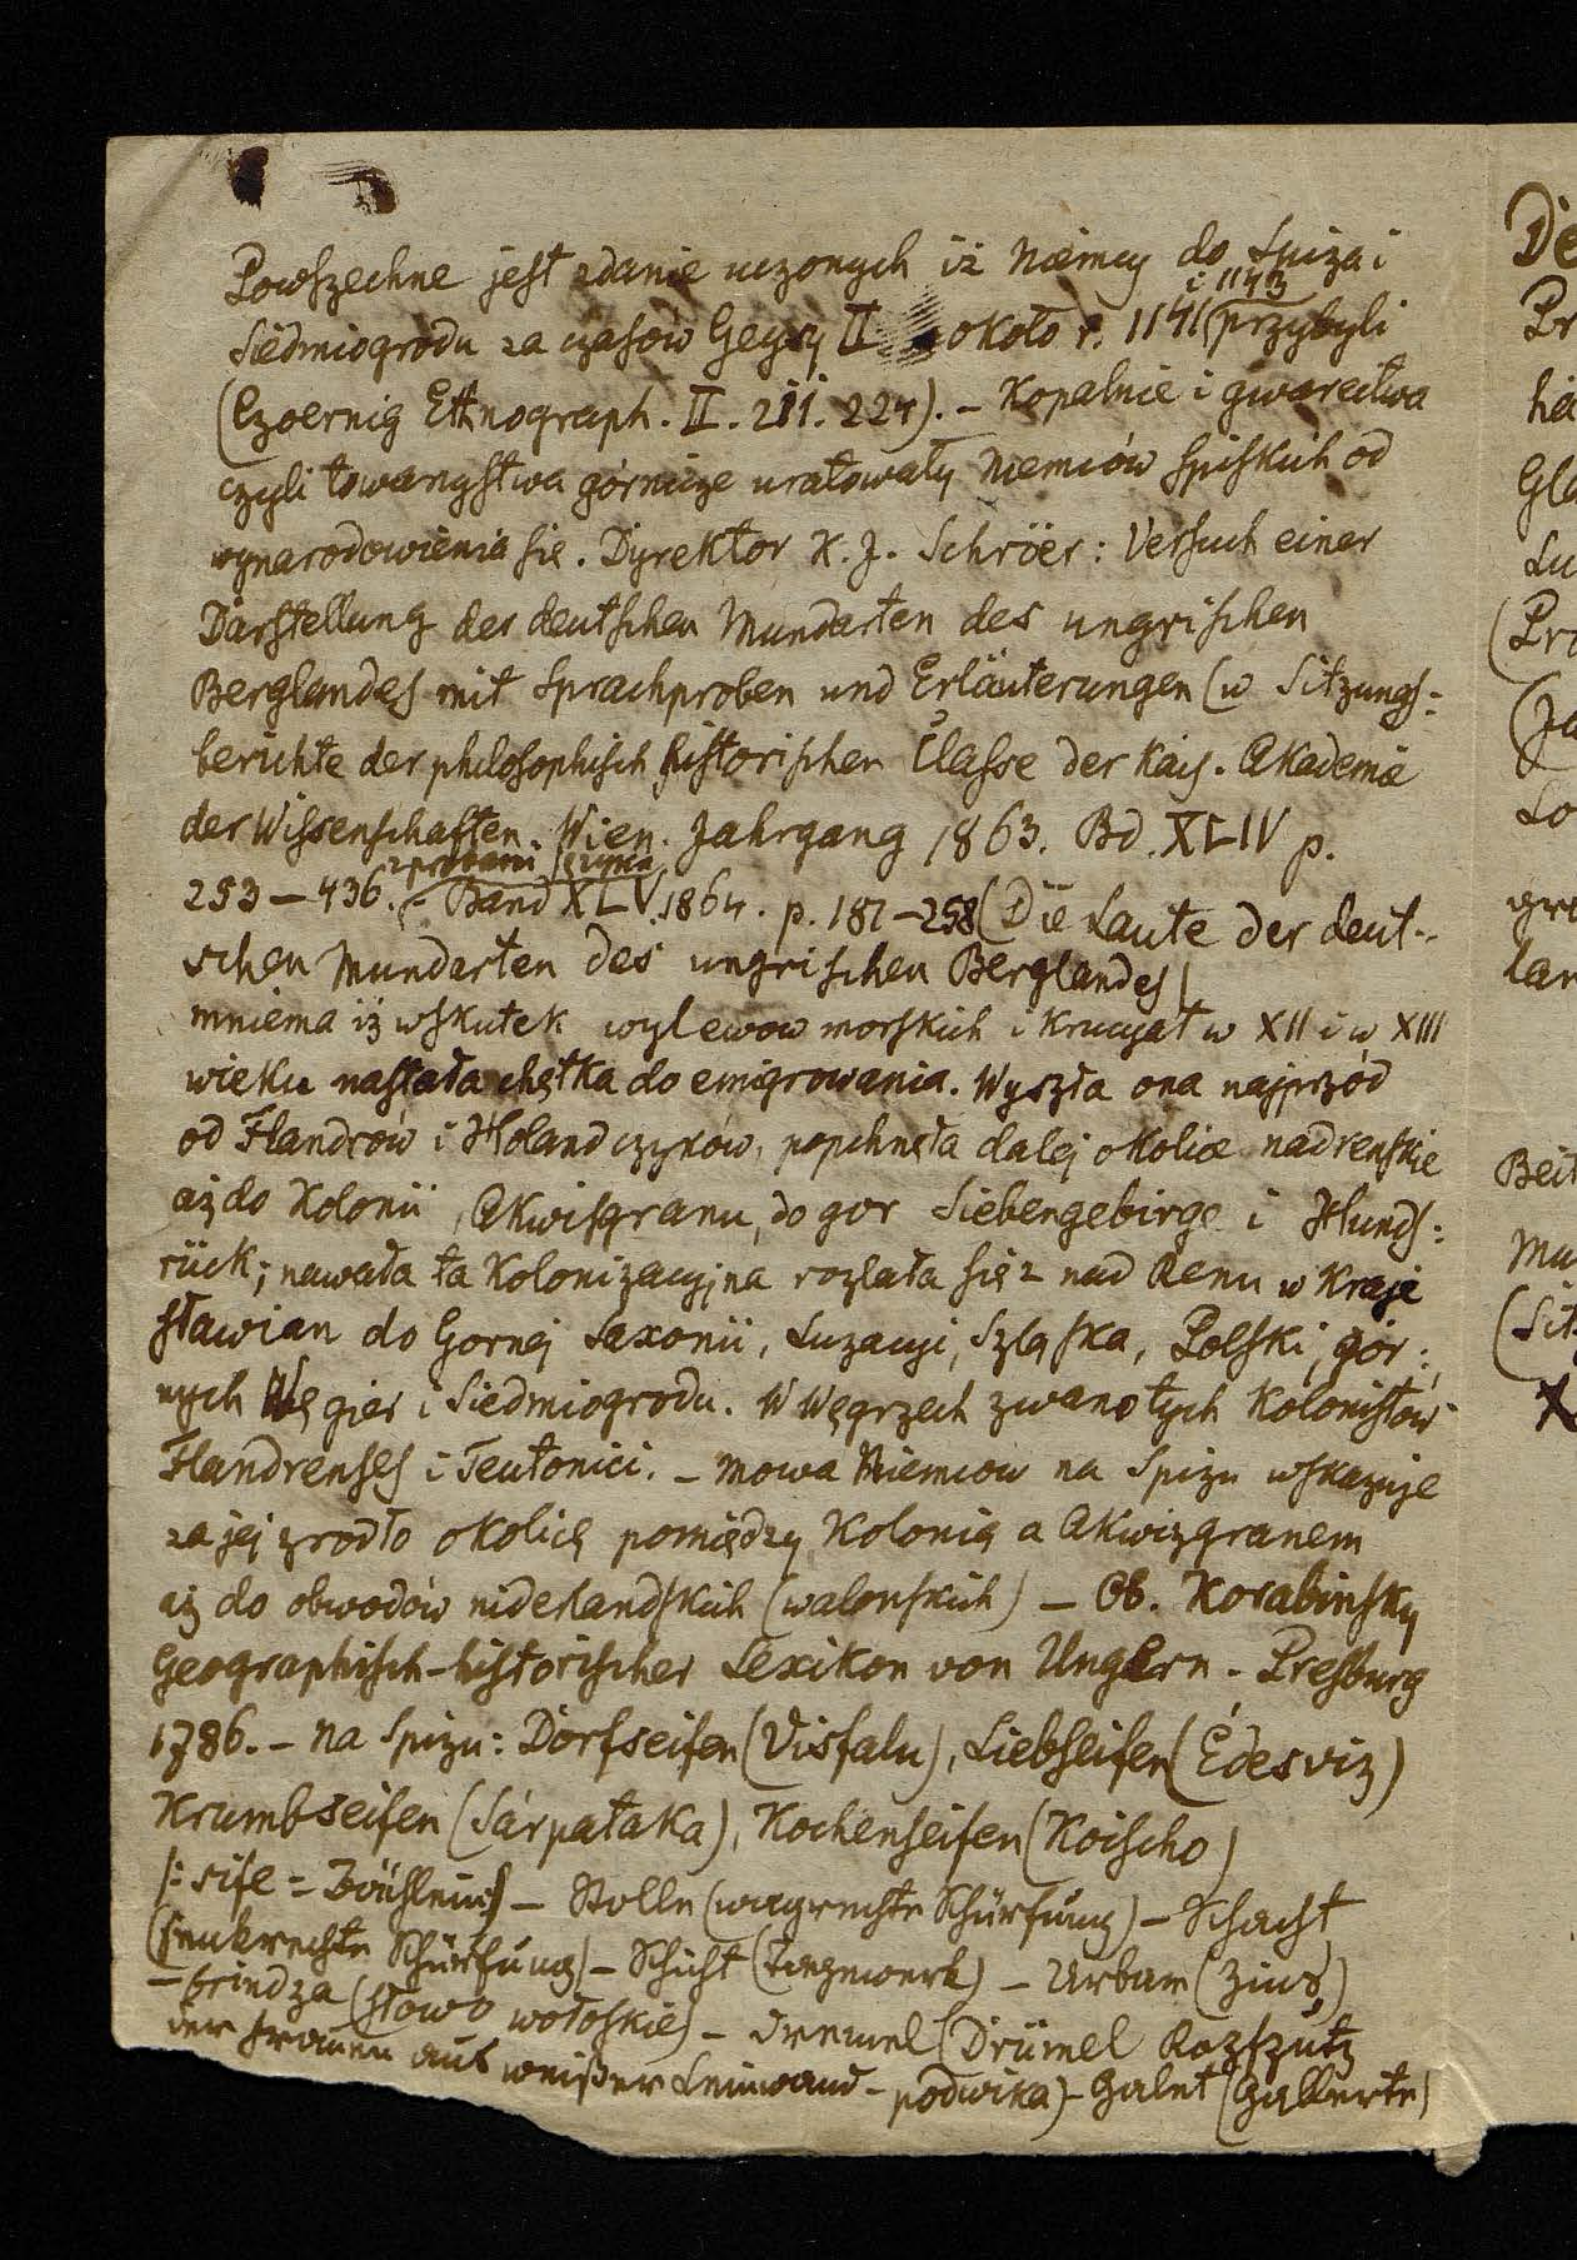 Powszechne jest zdanie uczonych iż Niemcy do Spiza i
Siedmiogrodu za czasów Geysy II około r. 1141 i 1143 przybyli
(Czoernig Ethnograph. II. 211. 224). – Kopalnie i gwarectwa
czyli towarzystwa górnicze uratowały Niemców spiskich od
wynarodowienia się. Dyrektor K. J. Schröer: Versuch einer
Darstellung der deutschen Mundarten des ungrischen
Berglandes mit Sprachproben und Erläuterungen (w Sitzungs=
berichte der philosophisch historischen Classe der Kais. Akademie
der Wissenschaften. Wien. Jahrgang 1863. Bd. XLIV p.
253–436. z probami języka – Band XLV. 1864. p. 181–258 (Die Laute der deut-
schen Mundarten des ungrischen Berglandes)
mniema iż wskutek wylewow morskich i krucyat w XII i w XIII
wieku nastała chętka do emigrowania. Wyszła ona najprzód
od Flandrów i Holandczyków, popchnęła dalej okolice nadreńskie
aż do Kolonii, Akwisgranu, do gor Siebengebirge i Hunds=
rück; nawała ta kolonizacyjna rozlała się z nad Renu w kraje
sławian do Gornej Saxonii, Luzacyi, Szląska, Polski, gór=
nych Węgier i Siedmiogrodu. W Węgrzech zwano tych kolonistów
Flandrenses i Teutonici. – Mowa Niemcow na Spizu wskazuje
za jej zrodło okolicę pomiędzy Kolonią a Akwizgranem
aż do obwodów niderlandskich (walońskich) – Ob. Korabinsky
Geographisch-historischer Lexikon von Ungern – Presburg
1786. – na Spizu: Dorfseifen (Visfalu), Liebseifen (Édesviz)
Krumbseifen (Sárpataka), Kochenseifen (Koischo)
/: sife = Bächlein) – Stolle (wagrechte Schürfung) – Schacht
(senkrechte Schürfung) – Schicht (Tagewerk) – Urbar (Zins)
– brindza (słowo wołoskie) – Dremel (Drümel Kopfputz
der Frauen aus weißer Leinwand – podwika) – Galret (Gallerte)
De
Pr
ha
Gla
Lu
(Pro
(Ja
Lo
gre
lan
Beit
Mu
(Sit